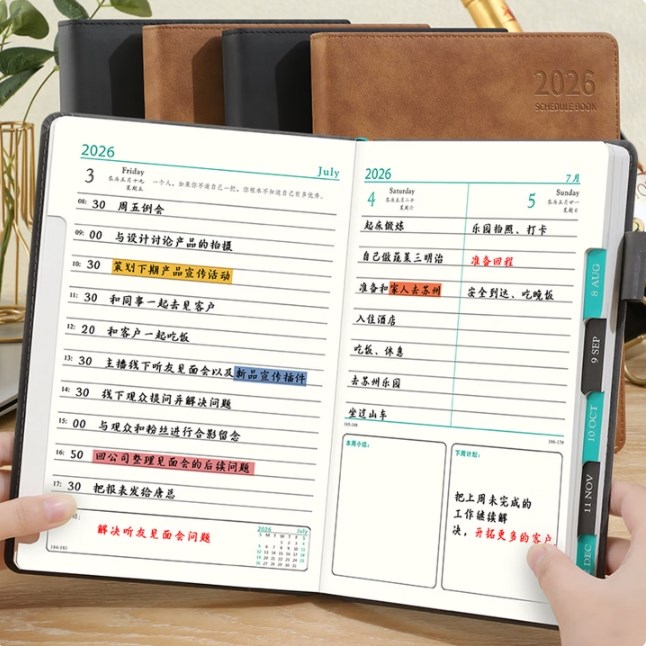 2026
SCHEDULE BOOK
2026
July
3
Friday
农历五月十九
星期五
一个人，如果你不逼自己一把，你根本不知道自己有多优秀。
08: 30 周五例会
09: 00 与设计讨论产品的拍摄
10: 30 策划下期产品宣传活动
11: 30 和同事一起去见客户
12: 20 和客户一起吃饭
13: 30 主播线下听友见面会以及新品宣传插件
14: 30 线下观众提问并解决问题
15: 00 与观众和粉丝进行合影留念
16: 50 回公司整理见面会的后续问题
17: 30 把报表发给唐总
解决听友见面会问题
184-181
2026 July
S M T W T F S
2026
7月
4
Saturday
星期六
5
Sunday
星期日
起床锻炼
乐园拍照、打卡
自己做蔬菜三明治
准备回程
准备和家人去苏州
安全到达、吃晚饭
入住酒店
吃饭、休息
去苏州乐园
坐过山车
本周小结:
下周计划:
把上周未完成的
工作继续解
决，开拓更多的客户
8 AUG
9 SEP
10 OCT
11 NOV
DEC